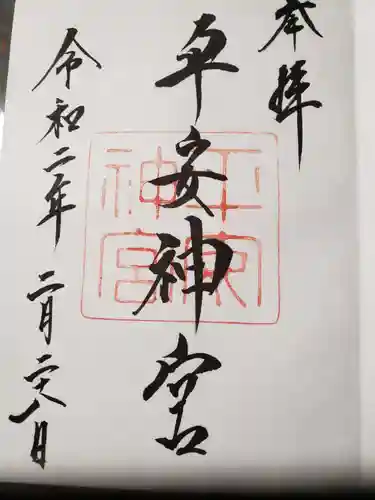 奉拝
平安神宮
平安神宮
令和二年 二月二十八日